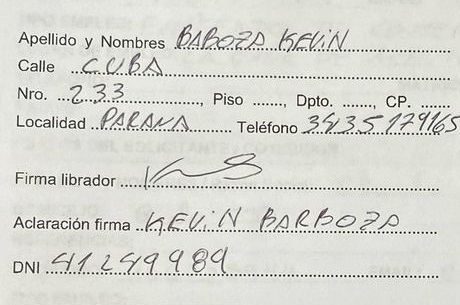 Apellido y Nombres BABOZA KEVIN
Calle CUBA
Nro. 233, Piso ......., Dpto. ......., CP. .......
Localidad PARANA Teléfono 3435179165
Firma librador
Aclaración firma KEVIN BARBOZA
DNI 41249989